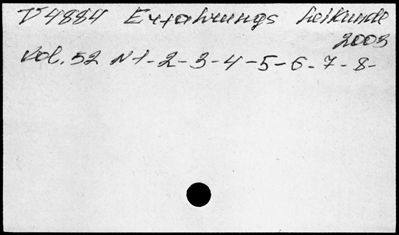 V 4884 Erfahrungs heilkunde
2003
Vol. 52 N 1-2-3-4-5-6-7-8-